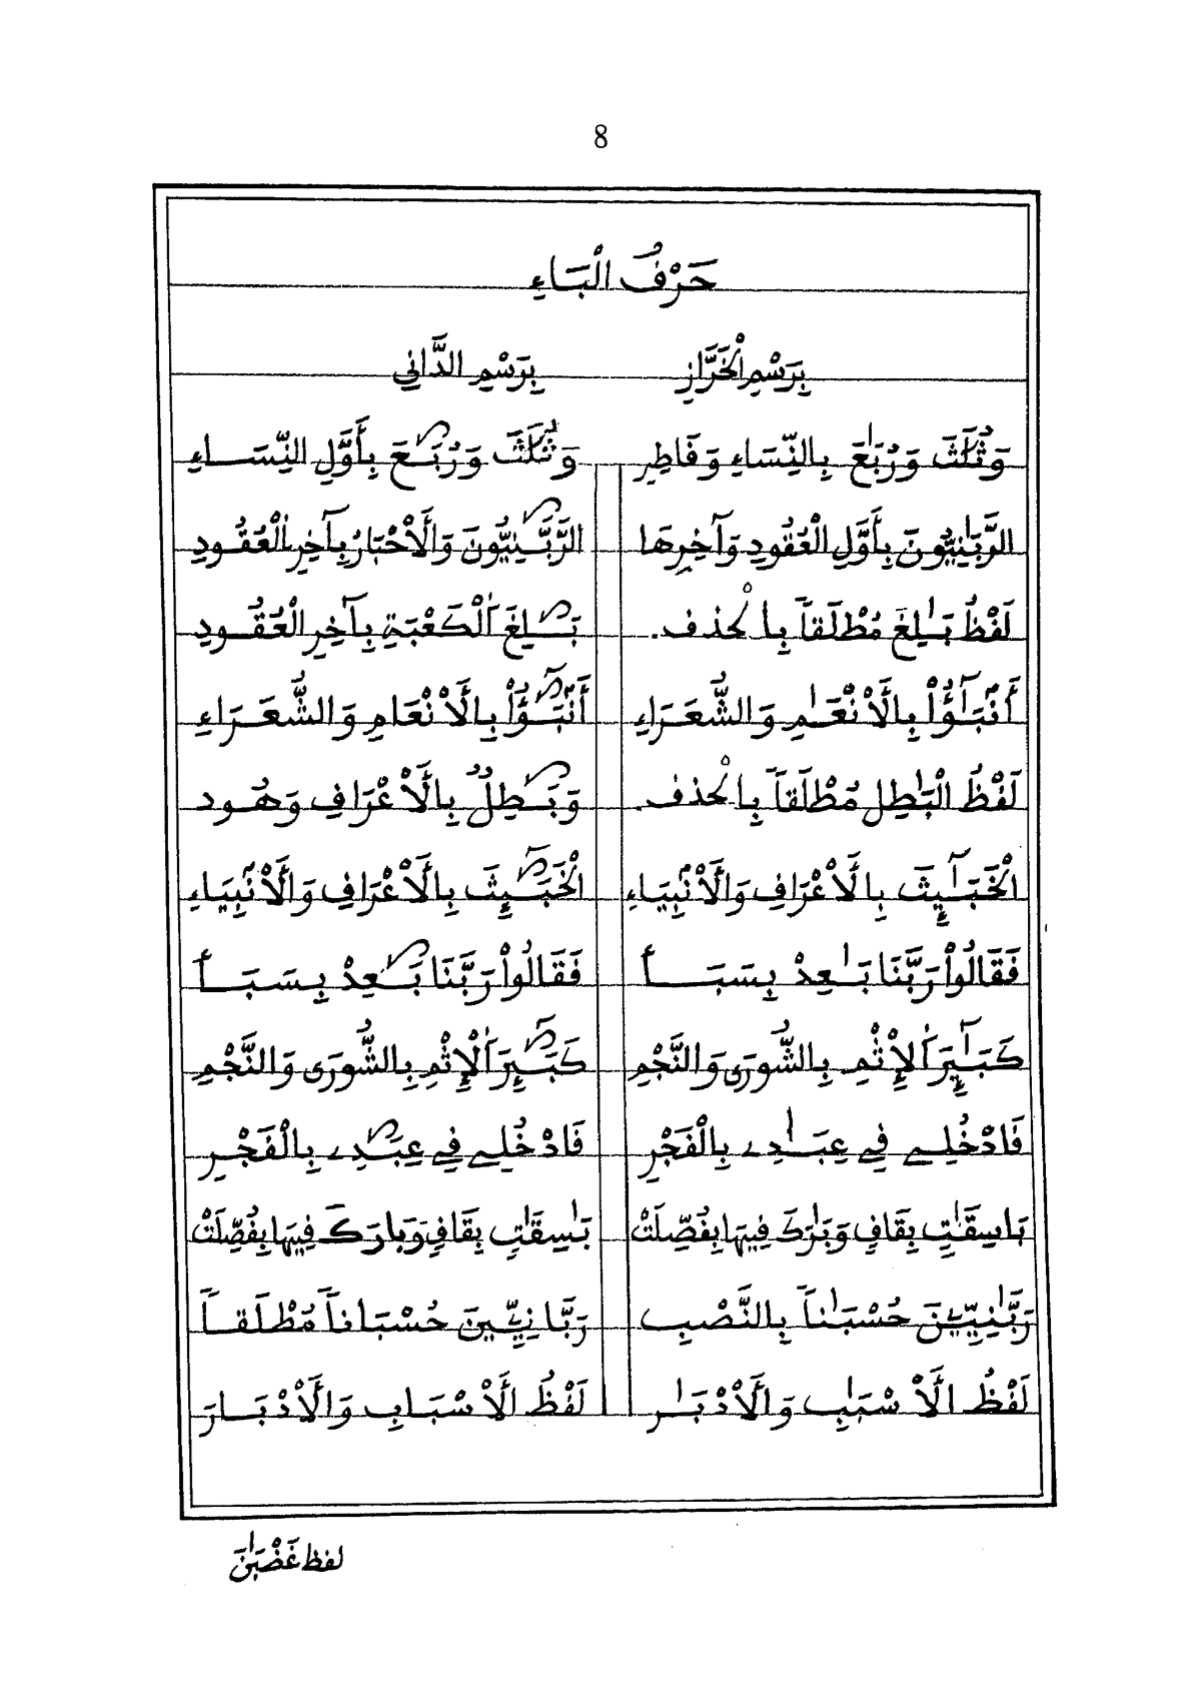 8
حَرْفُ الْبَاءِ
بِرَسْمِ الْخَرَّازِ بِرَسْمِ الدَّانِي
وَثُلَٰثَ وَرُبَٰعَ بِالنِّسَاءِ وَفَاطِرِ وَثُلَٰثَ وَرُبَٰعَ بِأَوَّلِ النِّسَاءِ
الرَّبَّٰنِيُّونَ بِأَوَّلِ الْعُقُودِ وَآخِرِهَا الرَّبَّٰنِيُّونَ وَالْأَحْبَارُ بِآخِرِ الْعُقُودِ
لَفْظُ بَٰلِغَ مُطْلَقاً بِالْحذف. بَٰلِغَ الْكَعْبَةِ بِآخِرِ الْعُقُودِ
أَنۢبَٰٓؤُاْ بِالْأَنْعَٰمِ وَالشُّعَرَاءِ أَنۢبَٰٓؤُاْ بِالْأَنْعَامِ وَالشُّعَرَاءِ
لَفْظُ الْبَٰطِلِ مُطْلَقاً بِالْحذف. وَبَٰطِلٌ بِالْأَعْرَافِ وَهُود
الْخَبَٰٓئِثَ بِالْأَعْرَافِ وَالْأَنۢبِيَاءِ الْخَبَٰٓئِثَ بِالْأَعْرَافِ وَالْأَنۢبِيَاءِ
فَقَالُواْ رَبَّنَا بَٰعِدْ بِسَبَأ فَقَالُواْ رَبَّنَا بَٰعِدْ بِسَبَأ
كَبَٰٓئِرَ الْإِثْمِ بِالشُّورَى وَالنَّجْمِ كَبَٰٓئِرَ الْإِثْمِ بِالشُّورَى وَالنَّجْمِ
فَادْخُلِے فِے عِبَٰدِے بِالْفَجْرِ فَادْخُلِے فِے عِبَٰدِے بِالْفَجْرِ
بَاسِقَٰتٍ بِقَافِ وَبَٰرَكَ فِيهَا بِفُصِّلَتْ بَٰسِقَٰتٍ بِقَافِ وَبَارَكَ فِيهَا بِفُصِّلَتْ
رَبَّٰنِيِّينَ حُسْبَٰناً بِالنَّصْبِ رَبَّانِيِّينَ حُسْبَاناً مُطْلَقاً
لَفْظُ الْأَسْبَٰبِ وَالْأَدْبَٰرِ لَفْظُ الْأَسْبَابِ وَالْأَدْبَارَ
لفظ غَضْبَٰنَ